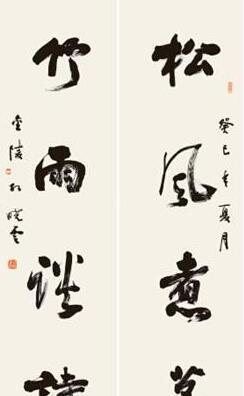 松風煮
癸巳年夏月
竹雨談詩
金陵
曉雲